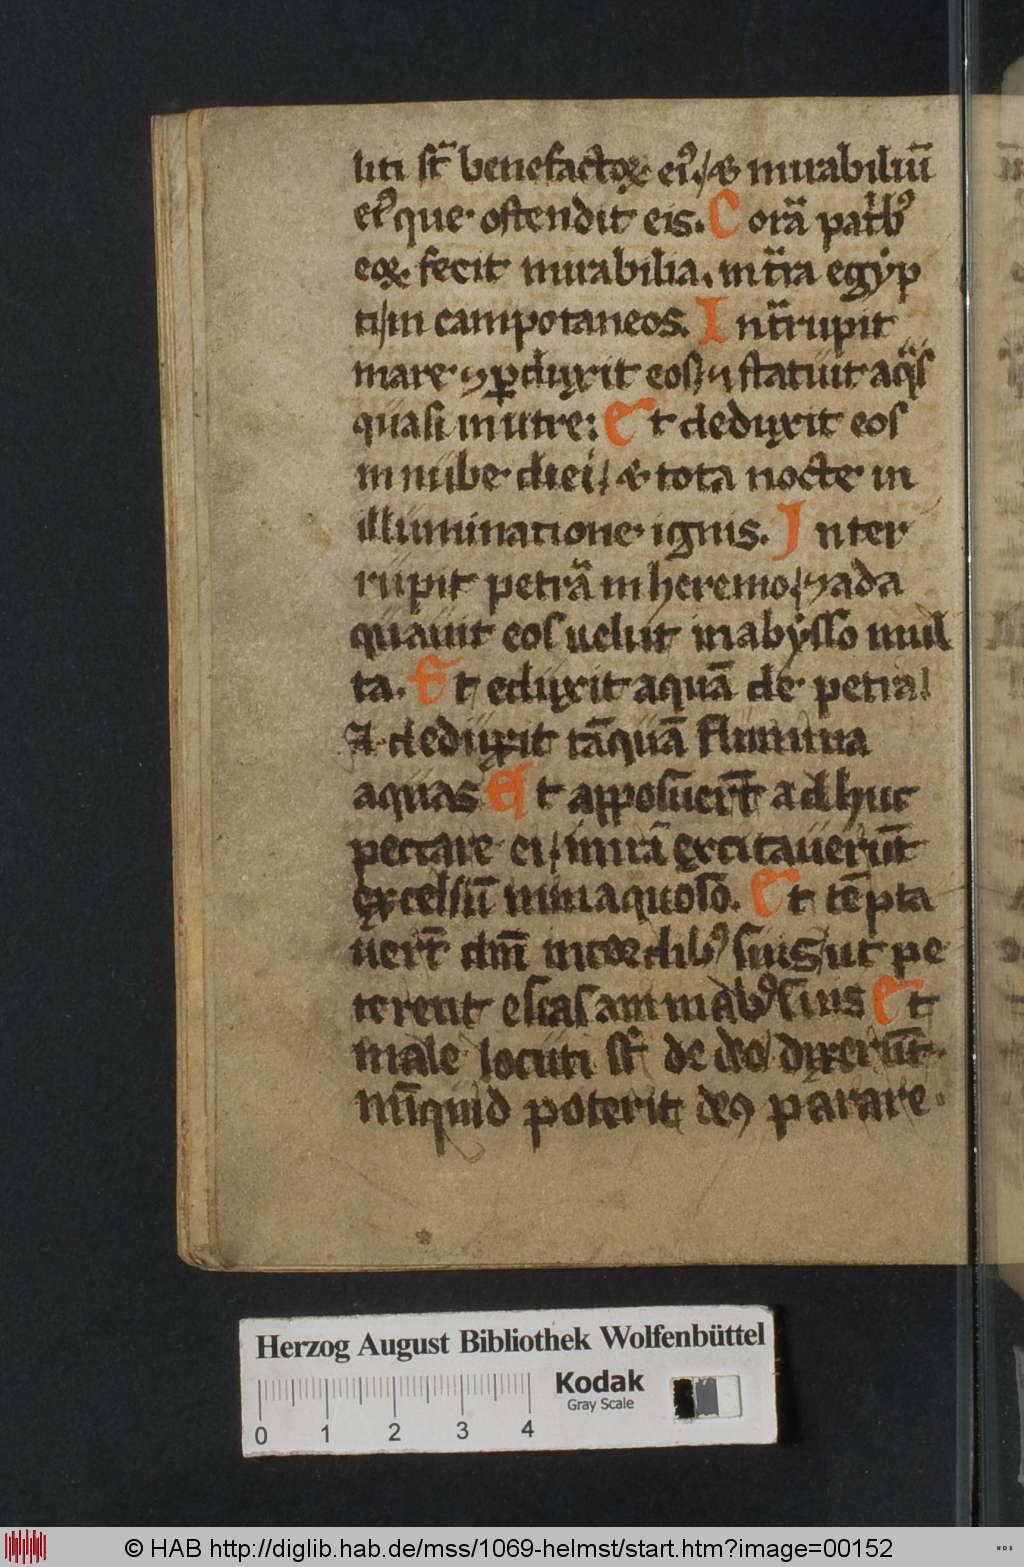 liti st̄ benefactoꝝ eiꝰ/ & mirabiliū
eiꝰque ostendit eis. Corā patribꝰ
eoꝝ fecit mirabilia, in t̄ra egyp
ti/in campotaneos. Int̄rupit
mare ⁊ ꝑduxit eos/ ⁊ statuit aqᵃs
quasi in utre: Et deduxit eos
in nube diei/ & tota nocte in
illuminatione ignis. Inter
rupit petrā in heremo/ ⁊ ada
quauit eos uelut in abysso mul
ta. Et eduxit aquā de petra/
& deduxit tāquā flumina
aquas Et apposuer̄t adhuc
peccare ei/ in irā excitauerūt
excelsū in inaquoso. Et tēpta
uer̄t dm̄ in coꝛdibꝰ suis/ ut pe
terent escas animabꝰ suis Et
male locuti st̄ de deo/ dixerūt
nūquid poterit deꝰ parare
Herzog August Bibliothek Wolfenbüttel
Kodak
Gray Scale
0 1 2 3 4
© HAB http://diglib.hab.de/mss/1069-helmst/start.htm?image=00152